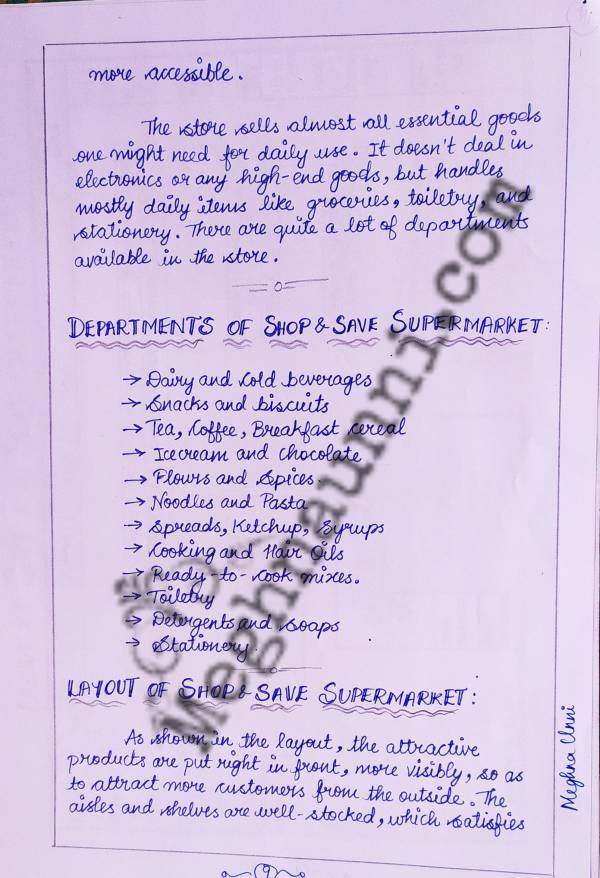 more accessible.
The store sells almost all essential goods
one might need for daily use. It doesn't deal in
electronics or any high-end goods, but handles
mostly daily items like groceries, toiletry, and
stationery. There are quite a lot of departments
available in the store.
DEPARTMENTS OF SHOP & SAVE SUPERMARKET:
→ Dairy and Cold beverages
→ Snacks and biscuits
→ Tea, Coffee, Breakfast cereal
→ Icecream and chocolate
→ Flours and Spices.
→ Noodles and Pasta
→ Spreads, Ketchup, Syrups
→ Cooking and Hair Oils
→ Ready-to-Cook mixes.
→ Toiletry
→ Detergents and soaps
→ Stationery.
LAYOUT OF SHOP & SAVE SUPERMARKET:
As shown in the layout, the attractive
products are put right in front, more visibly, so as
to attract more customers from the outside. The
aisles and shelves are well-stocked, which satisfies
9
Meghna Unni
Meghnaunni.com